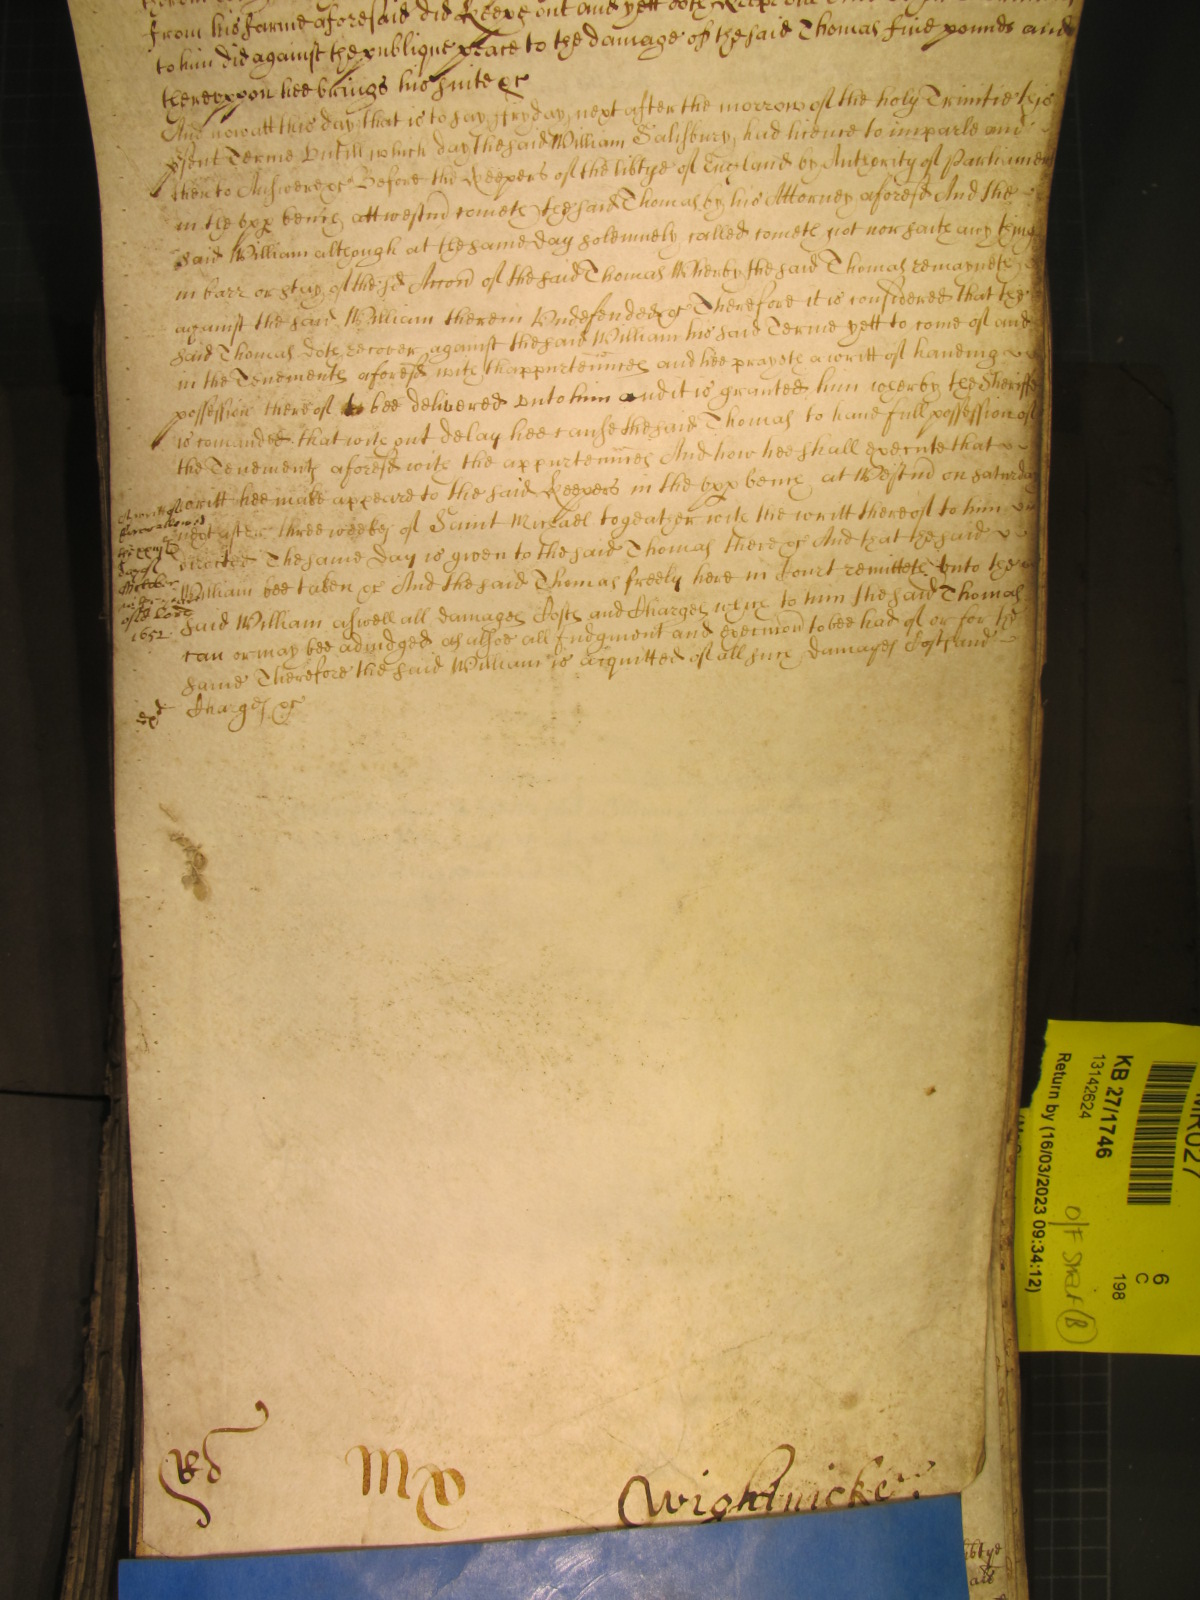 from his farme aforesaid did Keepe out and yett doth
to him did against the publique peace to the damage of the said Thomas five pounds and
thereuppon hee brings his suite &c
And now att this day that is to say fryday next after the morrow of the holy Trinitie this
psent Terme Untill which day the said William Salisbury had licence to imparle and
then to Answere &c Before the Keepers of the libtye of England by Authority of Parliament
in the upp bench att westm cometh the said Thomas by his Attorney aforesd And the
said William although at the same day solemnely called cometh not nor saith any thing
in barr or stay of the sd Accon of the said Thomas Wherby the said Thomas remayneth
against the said William therein Undefended &c Therefore it is considered that the
said Thomas doth recover against the said William his said Terme yett to come of and
in the Tenements aforesd with thappurtennces and hee prayeth a writt of haveing
possession thereof to bee delivered unto him and it is granted him wherby the Sheriffe
is comanded that without delay hee cause the said Thomas to have full possession of
the Tenements aforesd with the appurtennces And how hee shall execute that
writt hee make appeare to the said Keepers in the upp bench at Westm on Saturday
next after three weekes of Saint Michael togeather with the writt thereof to him
directed The same day is given to the said Thomas there &c And that the said
William bee taken &c And the said Thomas freely here in Court remitteth unto the
said William aswell all damages Costs and Charges which to him the said Thomas
can or may bee adiudged as alsoe all Judgment and execucon to bee had of or for the
same Therefore the said William is acquitted of all such damages Costs and
Charges &c
day of
October
of o Lord
1652
Rd
Wightwicke
KB 27/1746
13142624
Return by (16/03/2023 09:34:12)
6
C
198
O/F Shelf (B)
MR027
libtye